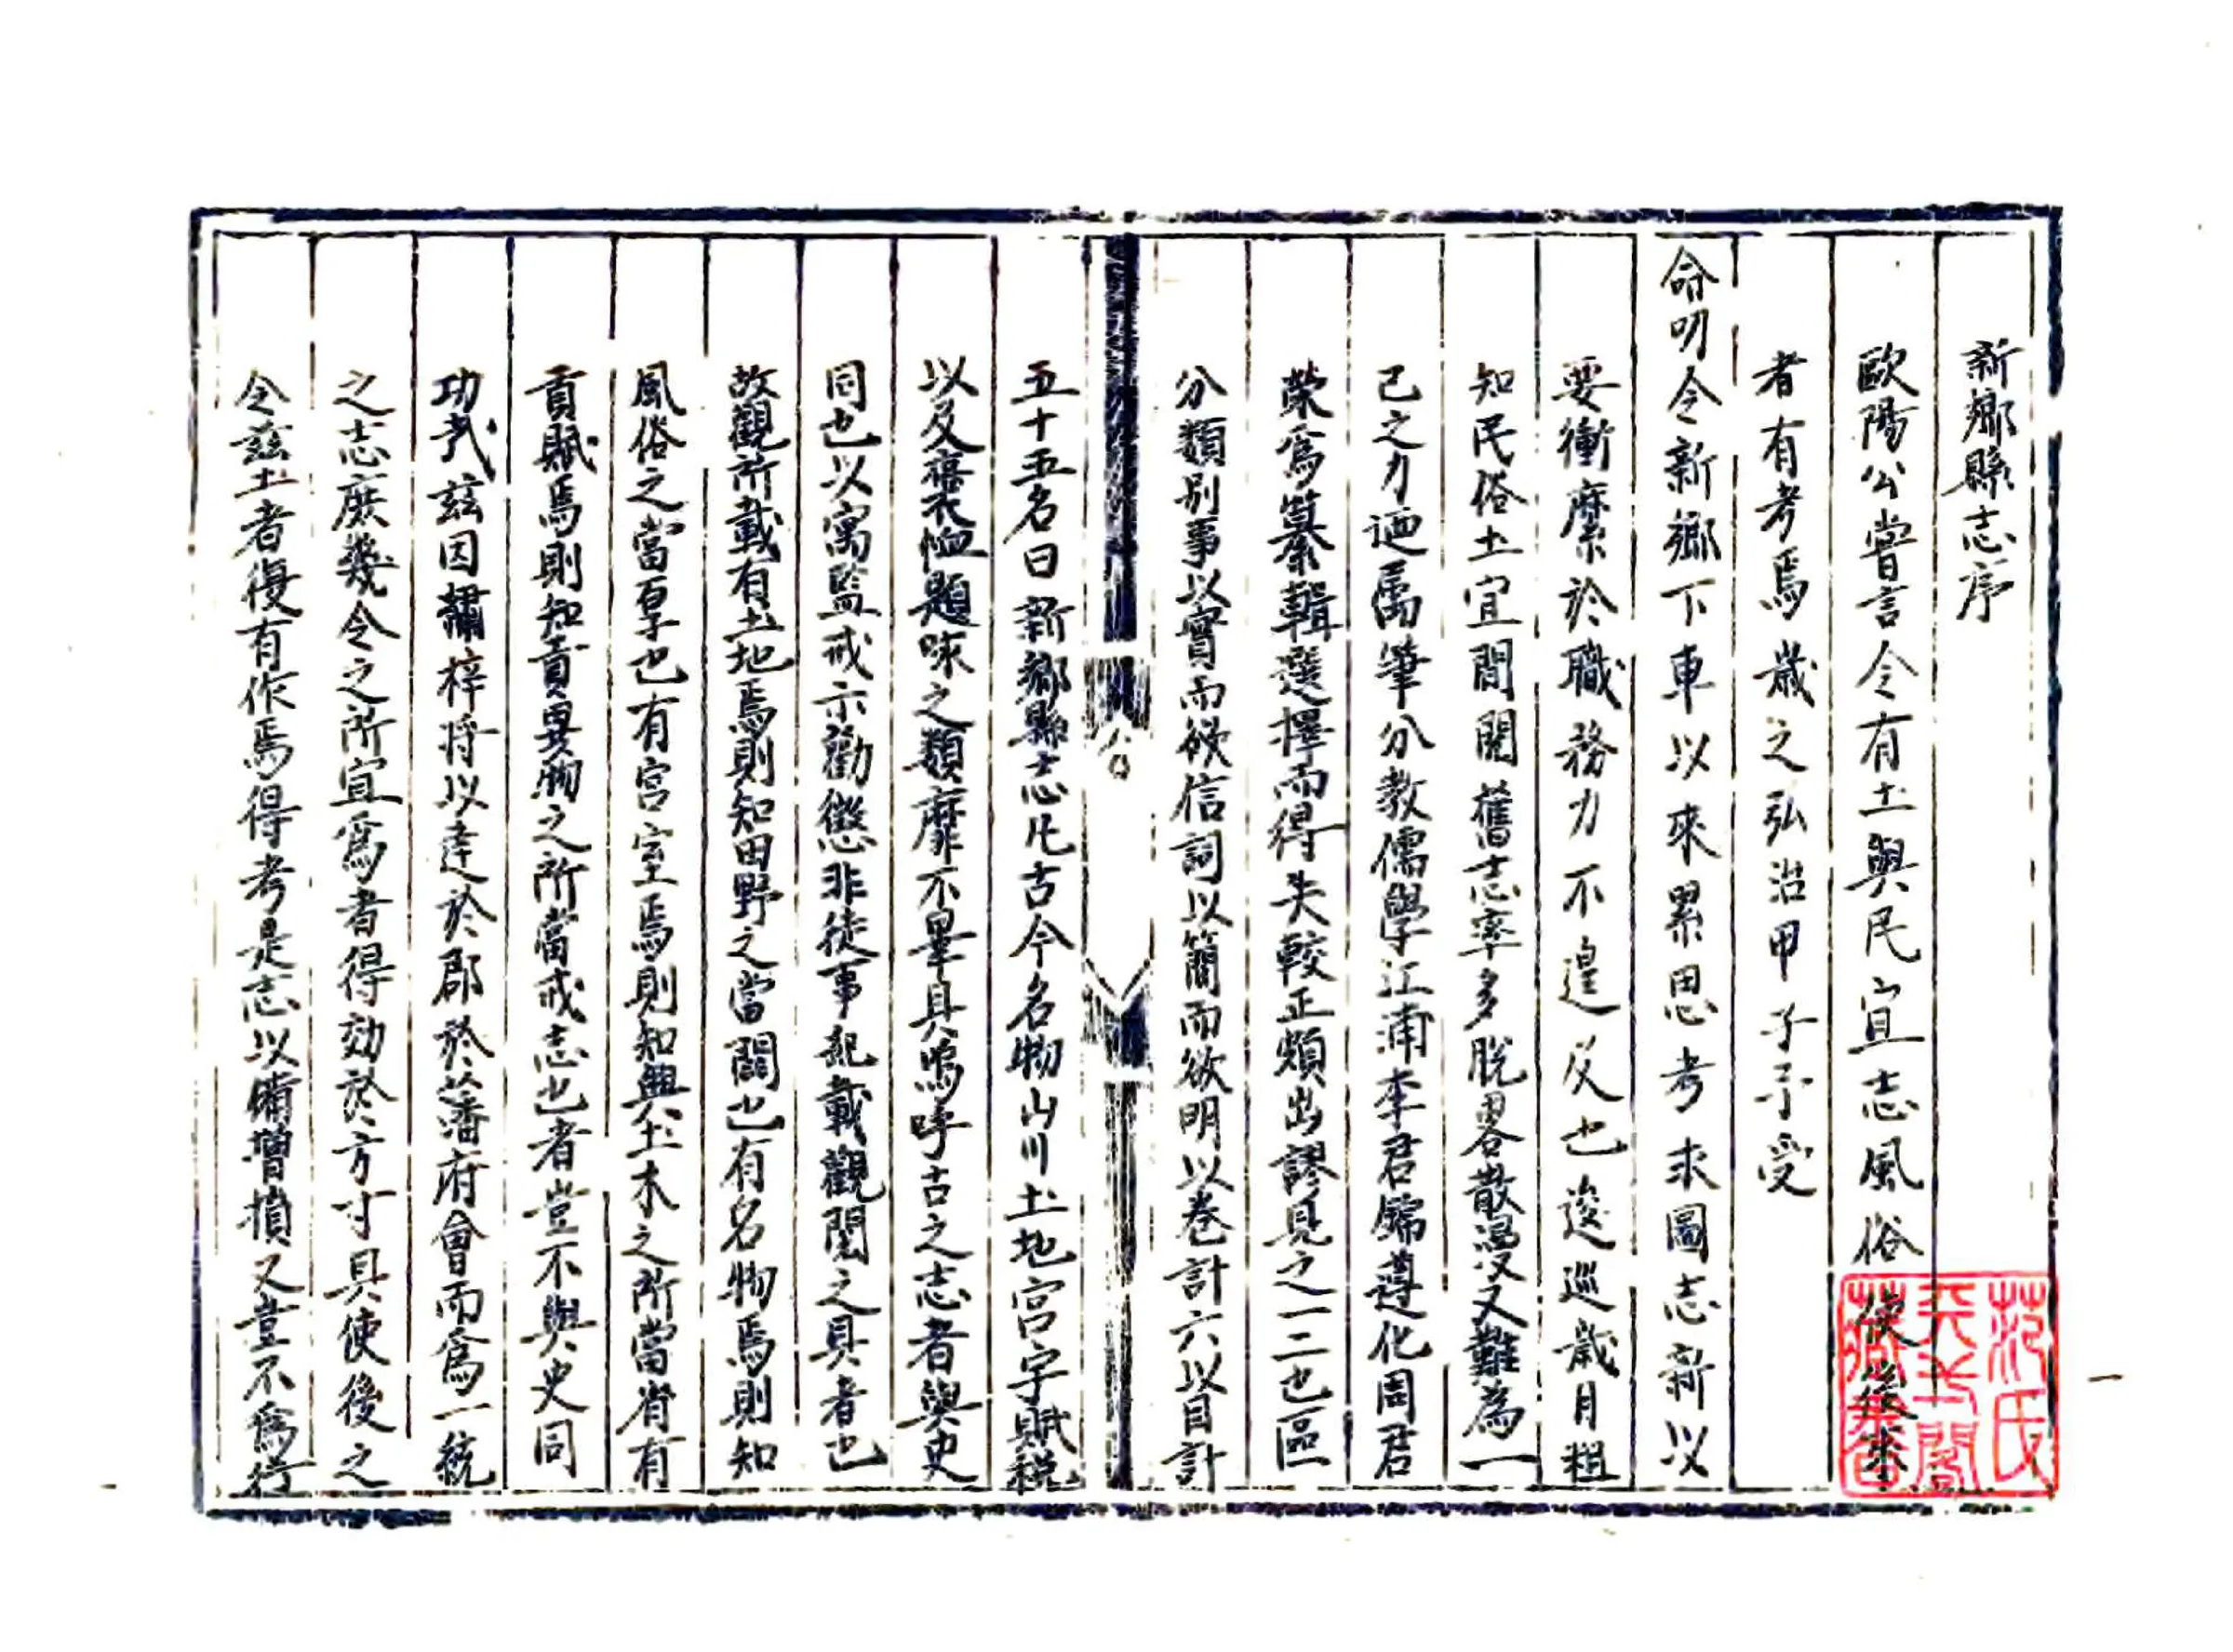 新鄉縣志序
歐陽公嘗言令有土與民宜志風俗使後來
者有考焉歲之弘治甲子予受
命叨令新鄉下車以來累思考求圖志新以
要衝縻於職務力不遑及也逡巡歲月粗
知民俗土宜間閱舊志率多脫畧散漫又難為一
己之力迺屬筆分教儒學江浦李君錦遵化周君
榮爲纂輯選擇而得失較正頗出謬見之一二也區
分類別事以實而欲信詞以簡而欲明以卷計六以目計
五十五名曰新鄉縣志凢古今名物山川土地宫宇賦稅
以及喪恤題咏之類靡不畢具嗚呼古之志者與史
同也以寓監戒示勸懲非徒事紀載觀閱之具者也
故觀所載有土地焉則知田野之當闢也有名物焉則知
風俗之當厚也有宫室焉則知興土木之所當省有
貢賦焉則知貢異物之所當戒志也者豈不與史同
功哉兹因繡梓将以達於郡於藩府會而爲一統
之志庶幾令之所宜爲者得効於方寸具使後之
令兹土者復有作焉得考是志以備增損又豈不爲行
范氏天一閣藏書